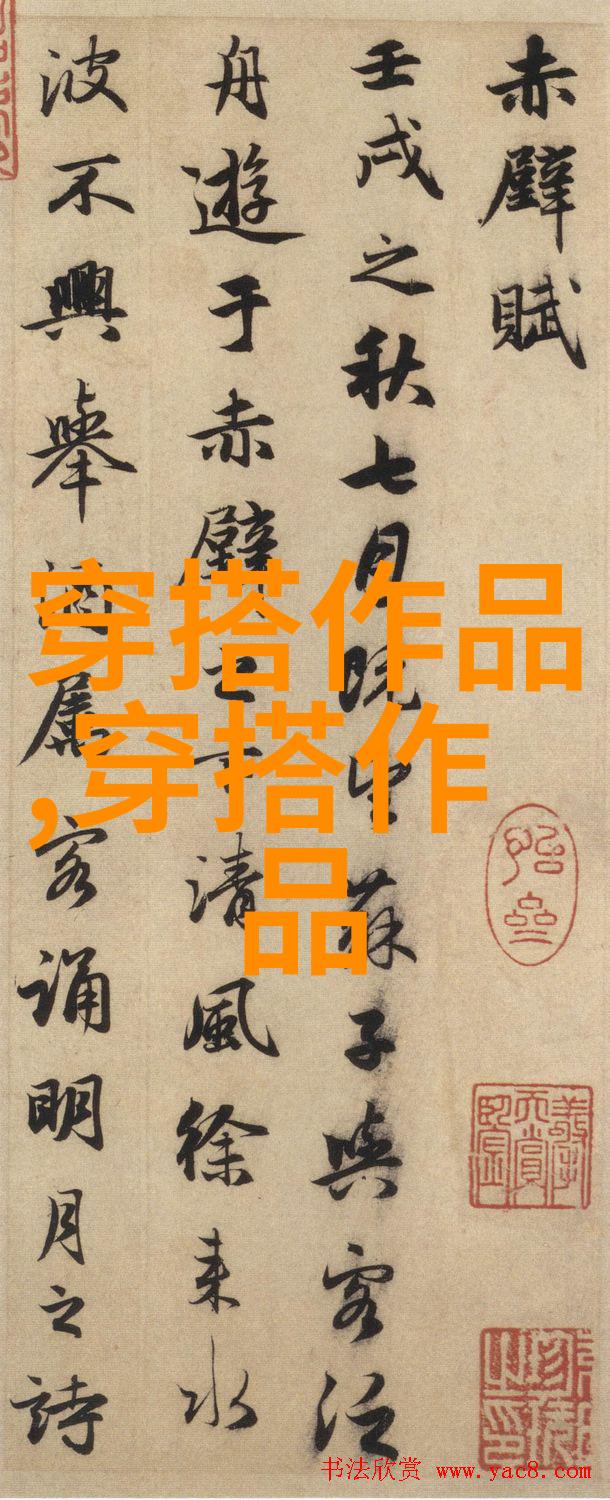 赤壁賦
壬戌之秋七月既望蘇子與客泛
舟遊于赤壁之下清風徐来水
波不興舉酒屬客誦明月之詩
穿搭作品
,穿搭作
品
书法欣赏 www.yac8.com